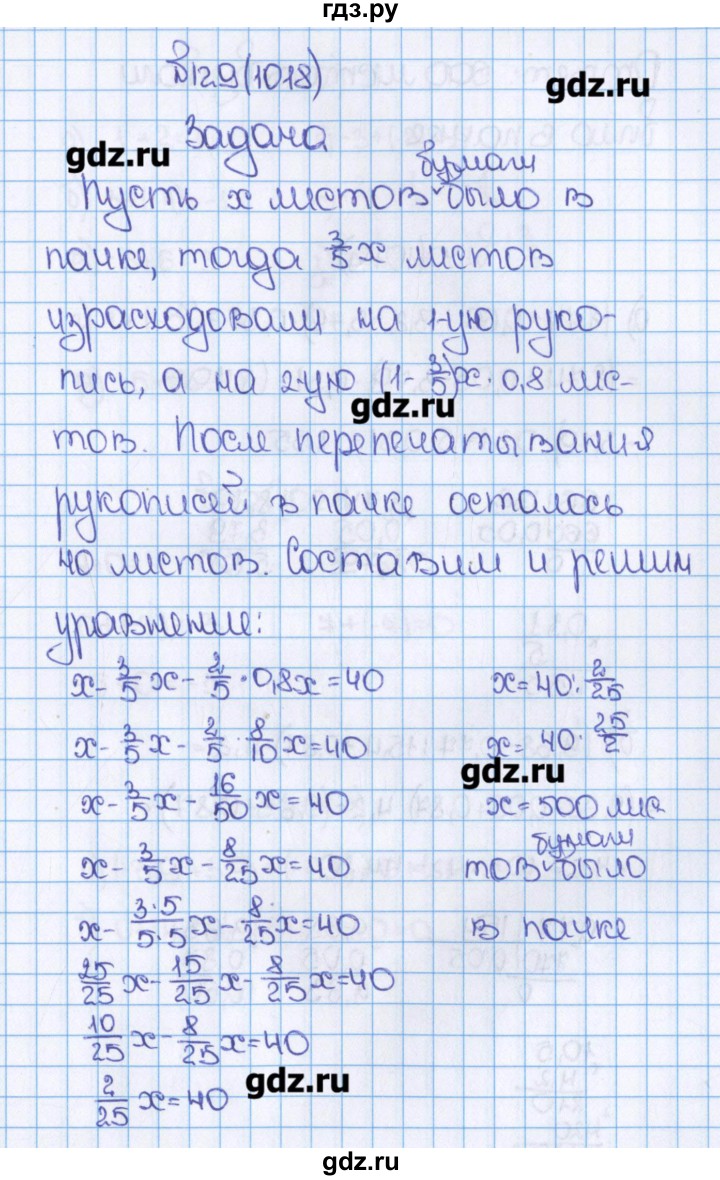 гдз.ру
№129(1018)
gdz.ru
Задача
gdz.ru
бумаги
Пусть x листов было в
пачке, тогда 3/5 x листов
израсходовали на 1-ую руко-
пись, а на 2-ую (1-3/5)x·0,8 лис-
gdz.ru
тов. После перепечатывания
рукописей в пачке осталось
40 листов. Составим и решим
уравнение:
x-3/5 x-2/5·0,8x=40
x-3/5 x-2/5·8/10 x=40
x-3/5 x-16/50 x=40
x-3/5 x-8/25 x=40
x-3·5/5·5 x-8/25 x=40
25/25 x-15/25 x-8/25 x=40
10/25 x-8/25 x=40
2/25 x=40
x=40:2/25
x=40·25/2
gdz.ru
x=500 лис
бумаги
тов было
в пачке
gdz.ru
gdz.ru